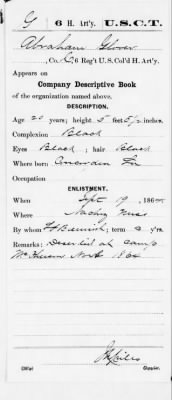 G 6 H. Art'y. U.S.C.T.
Abraham Glover
, Co. C, 6 Reg't U. S. Col'd H. Art'y.
Appears on
Company Descriptive Book
of the organization named above.
DESCRIPTION.
Age 20 years; height 5 feet inches.
Complexion Black
Eyes Black; hair Black
Where born
Occupation
ENLISTMENT.
When Sept 19, 186
Where Miss
By whom ; term 3 y'rs.
Remarks: Deserted at camp
Nov
Copyist.